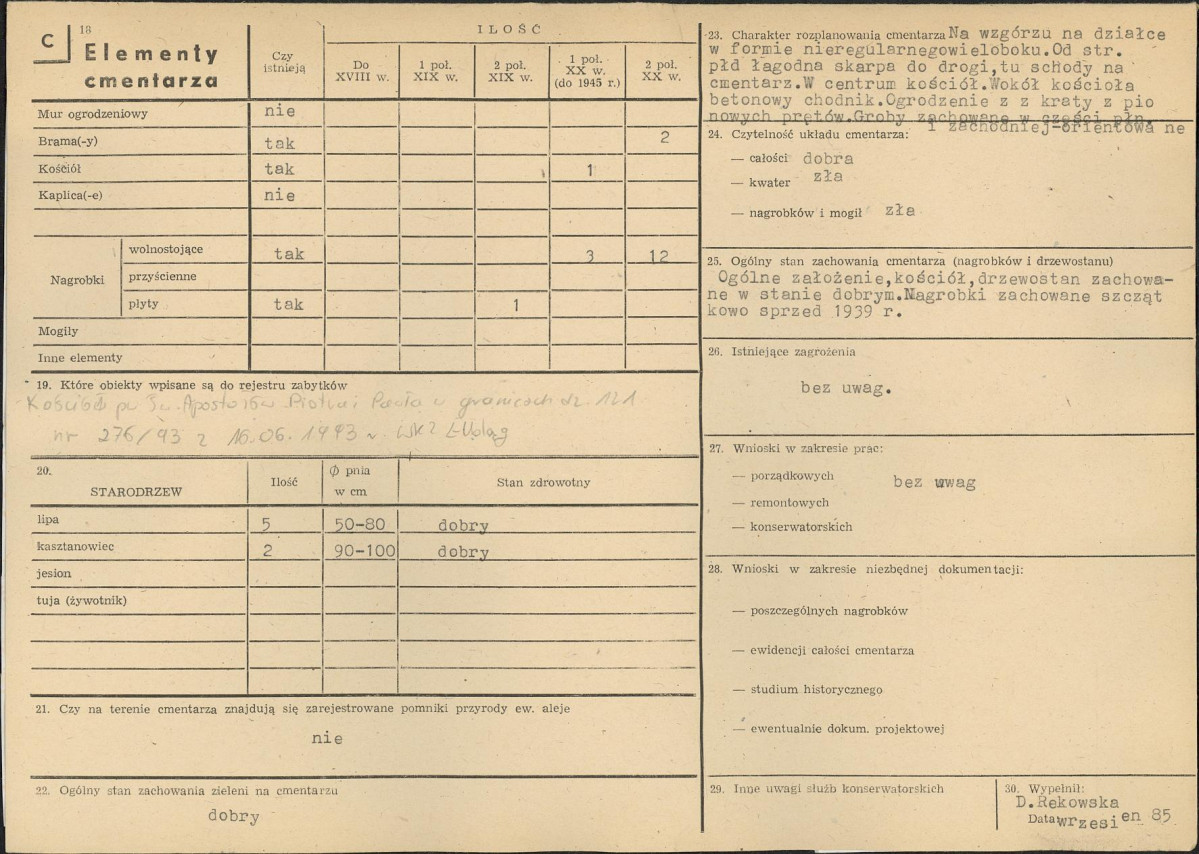 C
18
Elementy
cmentarza
Czy istnieją
ILOŚĆ
Do XVIII w.
1 poł. XIX w.
2 poł. XIX w.
1 poł. XX w. (do 1945 r.)
2 poł. XX w.
Mur ogrodzeniowy nie
Brama(-y) tak 2
Kościół tak 1
Kaplica(-e) nie
Nagrobki
wolnostojące tak 3 12
przyścienne
płyty tak 1
Mogiły
Inne elementy
19. Które obiekty wpisane są do rejestru zabytków
Kościół pw Św. Apostołów Piotra i Pawła w granicach dz. 121
nr 276/93 z 16.06.1993 r. WKZ Elbląg
20.
STARODRZEW
Ilość
Φ pnia
w cm
Stan zdrowotny
lipa 5 50-80 dobry
kasztanowiec 2 90-100 dobry
jesion
tuja (żywotnik)
21. Czy na terenie cmentarza znajdują się zarejestrowane pomniki przyrody ew. aleje
nie
22. Ogólny stan zachowania zieleni na cmentarzu
dobry
23. Charakter rozplanowania cmentarza Na wzgórzu na działce
w formie nieregularnegowieloboku.Od str.
płd łagodna skarpa do drogi,tu schody na
cmentarz.W centrum kościół.Wokół kościoła
betonowy chodnik.Ogrodzenie z z kraty z pio
nowych prętów.Groby zachowane w części płn.
i zachodniej-orientowa ne
24. Czytelność układu cmentarza:
— całości dobra
— kwater zła
— nagrobków i mogił zła
25. Ogólny stan zachowania cmentarza (nagrobków i drzewostanu)
Ogólne założenie,kościół,drzewostan zachowa-
ne w stanie dobrym.Nagrobki zachowane szcząt
kowo sprzed 1939 r.
26. Istniejące zagrożenia
bez uwag.
27. Wnioski w zakresie prac:
— porządkowych bez uwag
— remontowych
— konserwatorskich
28. Wnioski w zakresie niezbędnej dokumentacji:
— poszczególnych nagrobków
— ewidencji całości cmentarza
— studium historycznego
— ewentualnie dokum. projektowej
29. Inne uwagi służb konserwatorskich
30. Wypełnił:
D.Rękowska
Data wrzesi en 85